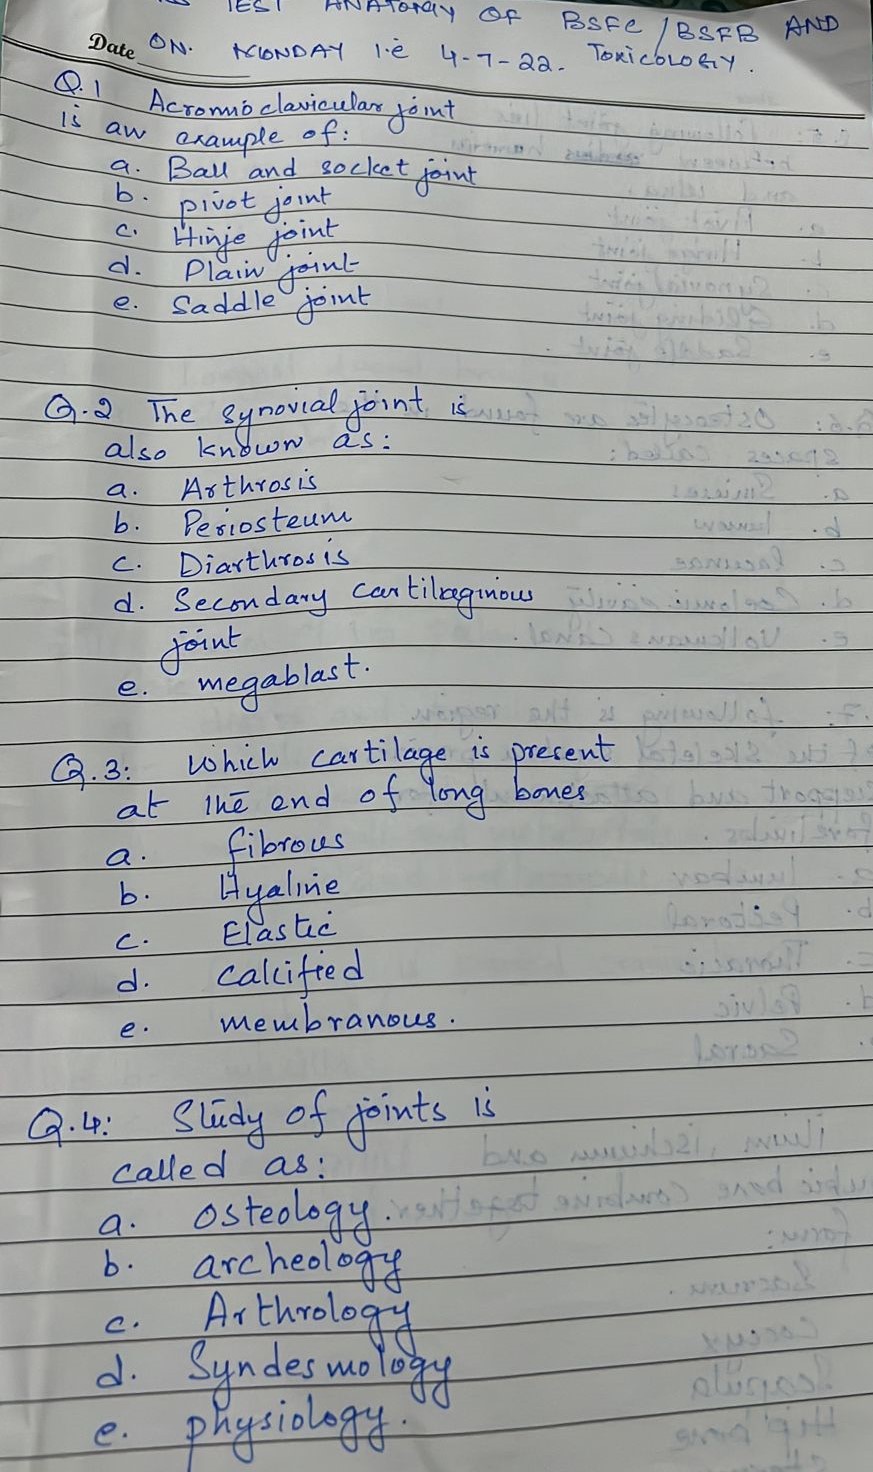 TEST ANATOMY OF BSFC / BSFB AND
Date ON. MONDAY i.e 4-7-22. TOXICOLOGY.
Q.1 Acromioclavicular joint
is an example of:
a. Ball and socket joint
b. pivot joint
c. Hinje joint
d. Plain joint
e. Saddle joint
Q.2 The synovial joint is
also known as:
a. Arthrosis
b. Periosteum
c. Diarthrosis
d. Secondary cartilaginous
joint
e. megablast.
Q.3: Which cartilage is present
at the end of long bones
a. fibrous
b. Hyaline
c. Elastic
d. calcified
e. membranous.
Q.4: Study of joints is
called as:
a. Osteology.
b. archeology
c. Arthrology
d. Syndesmology
e. physiology.